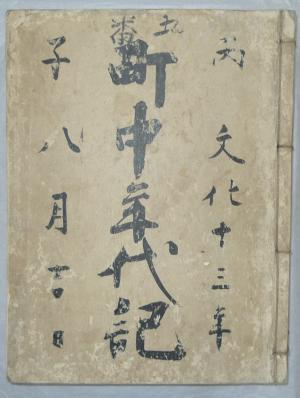 丙 文化十三年
五番
町中年代記
子 八月吉日